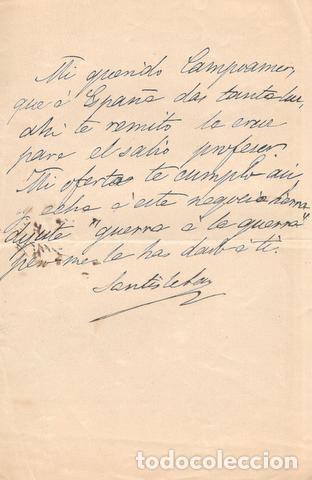 Mi querido Campoamor,
que á España das tanta luz,
ahi te remito la cruz
para el sabio profesor.
Mi oferta te cumplo asi
y echa á este negocio tierra
dijiste "guerra á la guerra"
pero me la has dado á ti.
Santisteban
todocoleccion.net